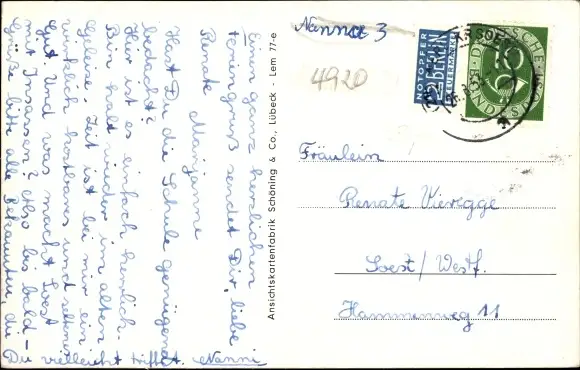 Nanna 3
4920
NOTOPFER
2 BERLIN
STEUERMARKE
DEUTSCHE
10
Ein ganz herzlichen
Feriengruß sendet Dir, liebe
Renate Marijanne
Hast Du die Schule genügend
bedacht?
Hier ist es einfach herrlich.
Bin halt wieder im alten
Gleise. Zeit ist bei mir ein
wirklich kostbares und seltenes
Gut. Und was macht Soest
mit Insassen? Also bis bald –
Grüße bitte alle Bekannten, die
Du vielleicht triffst. Nanni
Ansichtskartenfabrik Schöning & Co., Lübeck - Lem 77-e
Fräulein
Renate Vieregge
Soest/Westf.
Hammerweg 11